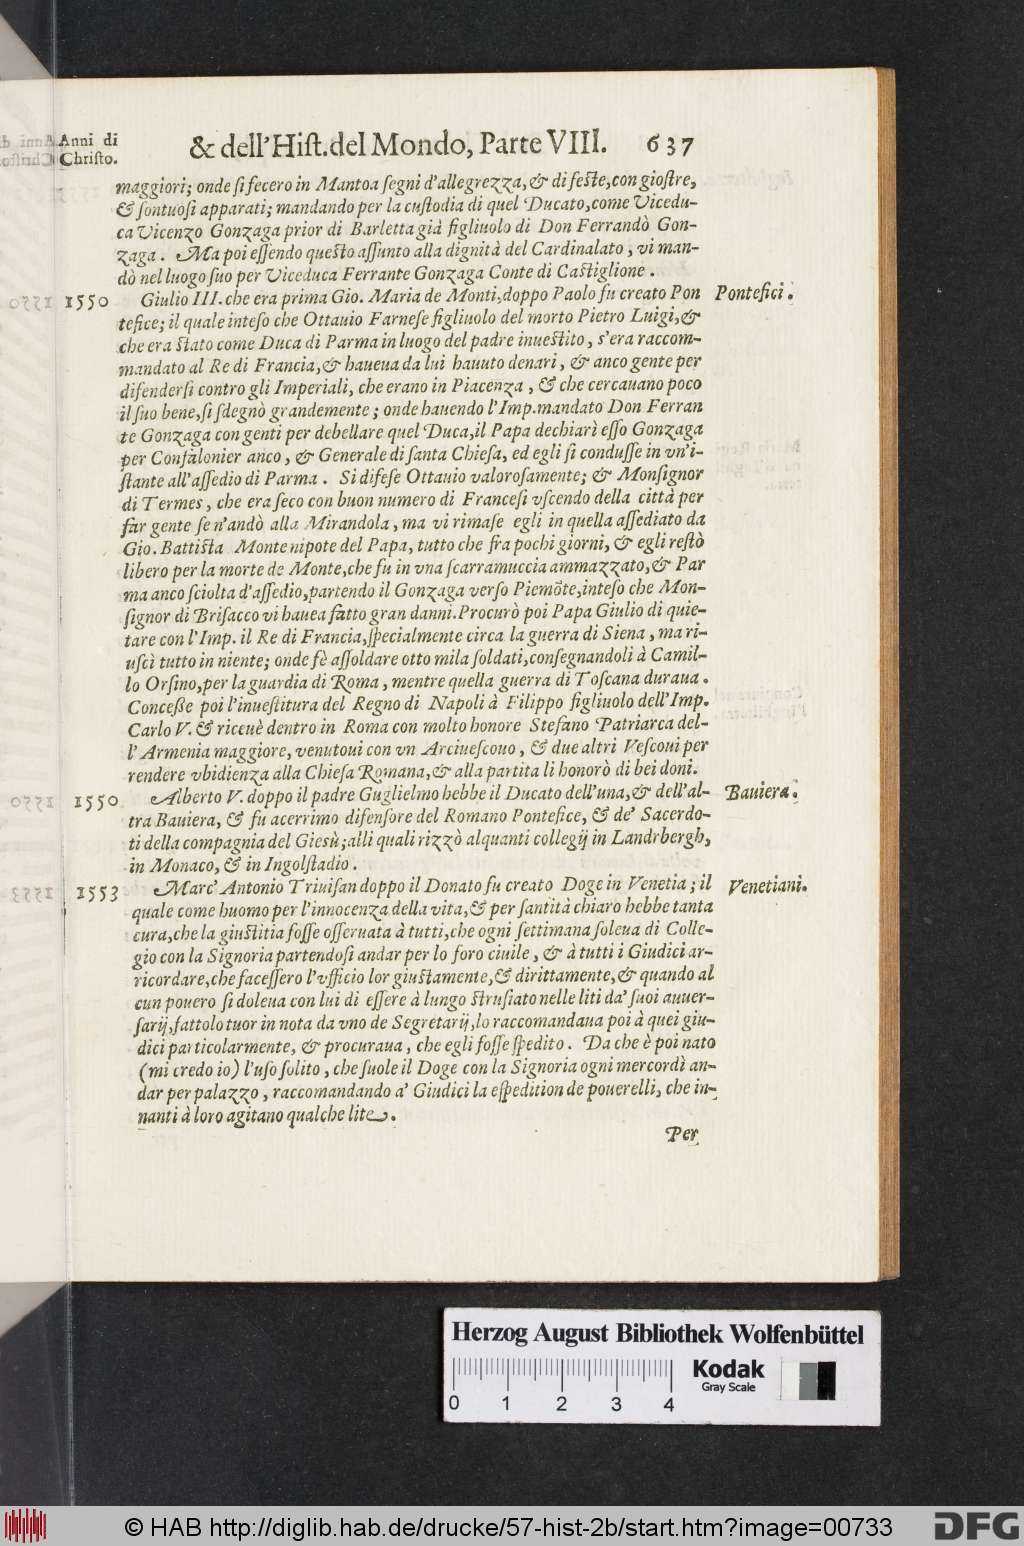 Anni di
Christo.
& dell'Hiſt. del Mondo, Parte VIII. 637
maggiori; onde ſi fecero in Mantoa ſegni d'allegrezza, & di feſte, con gioſtre,
& ſontuoſi apparati; mandando per la cuſtodia di quel Ducato, come Vicedu-
ca Vicenzo Gonzaga prior di Barletta già figliuolo di Don Ferrandò Gon-
zaga. Ma poi eſſendo queſto aſſunto alla dignità del Cardinalato, vi man-
dò nel luogo ſuo per Viceduca Ferrante Gonzaga Conte di Caſtiglione.
1550 Giulio III. che era prima Gio. Maria de Monti, doppo Paolo fu creato Pon Pontefici.
tefice; il quale inteſo che Ottauio Farneſe figliuolo del morto Pietro Luigi, &
che era ſtato come Duca di Parma in luogo del padre inueſtito, s'era raccom-
mandato al Re di Francia, & haueua da lui hauuto denari, & anco gente per
difenderſi contro gli Imperiali, che erano in Piacenza, & che cercauano poco
il ſuo bene, ſi ſdegnò grandemente; onde hauendo l'Imp. mandato Don Ferran
te Gonzaga con genti per debellare quel Duca, il Papa dechiarì eſſo Gonzaga
per Confalonier anco, & Generale di ſanta Chieſa, ed egli ſi conduſſe in vn'i-
ſtante all'aſſedio di Parma. Si difeſe Ottauio valoroſamente; & Monſignor
di Termes, che era ſeco con buon numero di Franceſi vſcendo della città per
far gente ſe n'andò alla Mirandola, ma vi rimaſe egli in quella aſſediato da
Gio. Battiſta Monte nipote del Papa, tutto che fra pochi giorni, & egli reſtò
libero per la morte de Monte, che fu in vna ſcarramuccia ammazzato, & Par
ma anco ſciolta d'aſſedio, partendo il Gonzaga verſo Piemõte, inteſo che Mon-
ſignor di Briſacco vi hauea fatto gran danni. Procurò poi Papa Giulio di quie-
tare con l'Imp. il Re di Francia, ſpecialmente circa la guerra di Siena, ma ri-
uſcì tutto in niente; onde fè aſſoldare otto mila ſoldati, conſegnandoli à Camil-
lo Orſino, per la guardia di Roma, mentre quella guerra di Toſcana duraua.
Conceſſe poi l'inueſtitura del Regno di Napoli à Filippo figliuolo dell'Imp.
Carlo V. & riceuè dentro in Roma con molto honore Stefano Patriarca del-
l'Armenia maggiore, venutoui con vn Arciueſcouo, & due altri Veſcoui per
rendere vbidienza alla Chieſa Romana, & alla partita li honorò di bei doni.
1550 Alberto V. doppo il padre Guglielmo hebbe il Ducato dell'una, & dell'al- Bauiera.
tra Bauiera, & fu acerrimo difenſore del Romano Pontefice, & de' Sacerdo-
ti della compagnia del Gieſù; alli quali rizzò alquanti collegij in Landrbergh,
in Monaco, & in Ingolſtadio.
1553 Marc' Antonio Triuiſan doppo il Donato fu creato Doge in Venetia; il Venetiani.
quale come huomo per l'innocenza della vita, & per ſantità chiaro hebbe tanta
cura, che la giuſtitia foſſe oſſeruata à tutti, che ogni ſettimana ſoleua di Colle-
gio con la Signoria partendoſi andar per lo foro ciuile, & à tutti i Giudici ar-
ricordare, che faceſſero l'vfficio lor giuſtamente, & dirittamente, & quando al
cun pouero ſi doleua con lui di eſſere à lungo ſtruſiato nelle liti da' ſuoi auuer-
ſarij, fattolo tuor in nota da vno de Segretarij, lo raccomandaua poi à quei giu-
dici particolarmente, & procuraua, che egli foſſe ſpedito. Da che è poi nato
(mi credo io) l'uſo ſolito, che ſuole il Doge con la Signoria ogni mercordì an-
dar per palazzo, raccomandando a' Giudici la eſpedition de pouerelli, che in-
nanti à loro agitano qualche lite.
Per
Herzog August Bibliothek Wolfenbüttel
0 1 2 3 4
Kodak
Gray Scale
© HAB http://diglib.hab.de/drucke/57-hist-2b/start.htm?image=00733
DFG